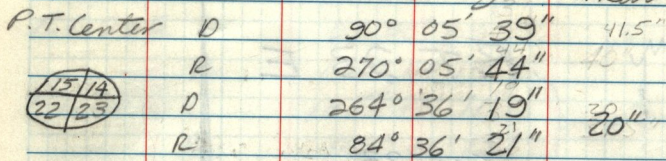 P.T. Center D 90° 05' 39" 41.5'
R 270° 05' 44"
15 14 D 264° 36' 19" 20"
22 23 R 84° 36' 21"